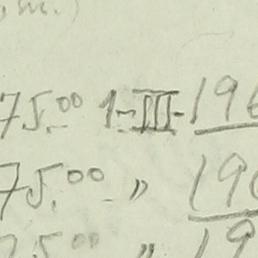 75.00 1-III-196
75.00 " 19
75.00 " 19